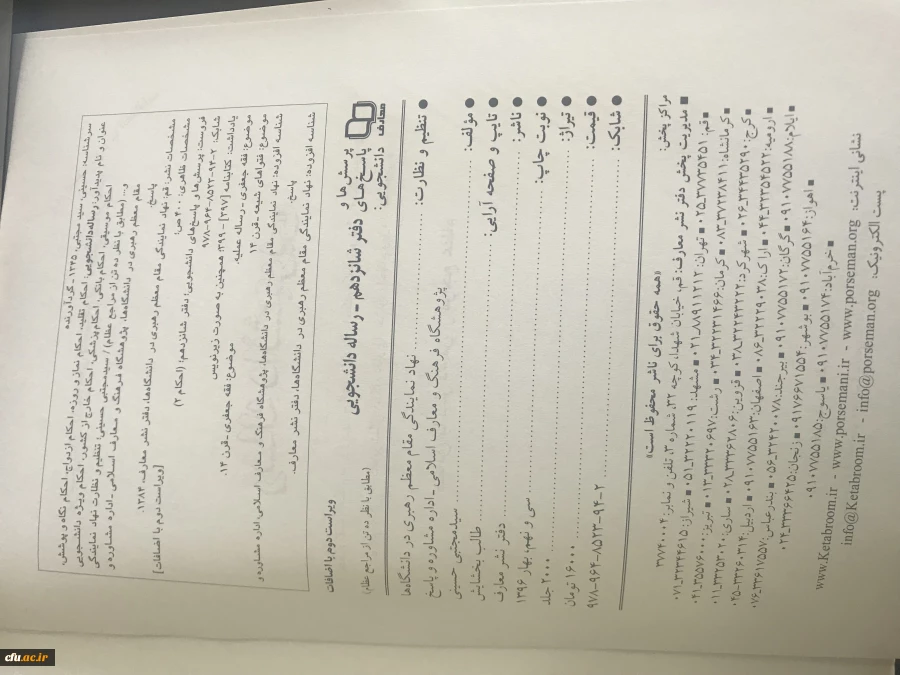 سرشناسه: حسینی، سید مجتبی، ۱۳۴۵ - گردآورنده
عنوان و نام پدیدآور: رساله دانشجویی: احکام تقلید، احکام نماز و روزه، احکام ازدواج، احکام نگاه و پوشش،
احکام موسیقی، احکام بانکی، احکام پزشکی، احکام خارج از کشور، احکام ویژه دانشجویی
و... (مطابق با نظر ده تن از مراجع عظام) / سیدمجتبی حسینی؛ تنظیم و نظارت نهاد نمایندگی
مقام معظم رهبری در دانشگاه‌ها، پژوهشگاه فرهنگ و معارف اسلامی - اداره مشاوره و
پاسخ.
[ویراست دوم با اضافات]
مشخصات نشر: قم: نهاد نمایندگی مقام معظم رهبری در دانشگاه‌ها، دفتر نشر معارف، ۱۳۸۴.
مشخصات ظاهری: ۴۰۰ ص.
فروست: پرسش‌ها و پاسخ‌های دانشجویی؛ دفتر شانزدهم؛ (احکام ۲)
شابک: ۲-۹۴-۸۵۲۳-۹۶۴-۹۷۸
یادداشت: کتابنامه [۳۹۷] - ۳۹۹؛ همچنین به صورت زیرنویس
موضوع: فقه جعفری - رساله عملیه
موضوع: فتواهای شیعه - قرن ۱۴
موضوع: فقه جعفری - قرن ۱۴.
شناسه افزوده: نهاد نمایندگی مقام معظم رهبری در دانشگاه‌ها، پژوهشگاه فرهنگ و معارف اسلامی اداره مشاوره و
پاسخ.
شناسه افزوده: نهاد نمایندگی مقام معظم رهبری در دانشگاه‌ها، دفتر نشر معارف.
معارف
پرسش‌ها و
پاسخ‌های
دانشجویی:
دفتر شانزدهم - رساله دانشجویی
(مطابق با نظر ده تن از مراجع عظام)
ویراست دوم با اضافات
● تنظیم و نظارت: نهاد نمایندگی مقام معظم رهبری در دانشگاه‌ها
پژوهشگاه فرهنگ و معارف اسلامی - اداره مشاوره و پاسخ
● مؤلف: سیدمجتبی حسینی
● تایپ و صفحه آرایی: طالب بخشایش
● ناشر: دفتر نشر معارف
● نوبت چاپ: سی و نهم، بهار ۱۳۹۶
● تیراژ: ۲۰۰۰ جلد
● قیمت: ۱۶۰۰۰ تومان
● شابک: ۲-۹۴-۸۵۲۳-۹۶۴-۹۷۸
«همه حقوق برای ناشر محفوظ است»
مراکز پخش:
■ مدیریت پخش دفتر نشر معارف: قم، خیابان شهدا، کوچه ۳۲، شماره ۳، تلفن و نمابر: ۳۷۷۴۰۰۰۴
■ قم: ۳۷۷۳۵۴۵۱-۰۲۵ ■ تهران: ۸۸۹۱۱۲۱۲-۰۲۱ ■ مشهد: ۳۲۲۲۰۱۱۹-۰۵۱ ■ شیراز: ۳۲۳۴۴۶۱۵-۰۷۱
■ کرمانشاه: ۳۷۲۳۸۴۱۱-۰۸۳ ■ کرمان: ۳۲۲۳۱۴۶۶-۰۳۴ ■ رشت: ۳۳۳۲۰۶۹۷-۰۱۳ ■ تبریز: ۳۵۵۷۶۰۰۰-۰۴۱
■ کرج: ۳۴۴۳۵۲۹۰-۰۲۶ ■ شهرکرد: ۳۲۲۴۳۲۲۲-۰۳۸ ■ قزوین: ۳۳۳۶۲۸۰۶-۰۲۸ ■ ساری: ۳۳۲۵۳۰۲۰-۰۱۱
■ ارومیه: ۳۲۲۳۵۴۵۲۲-۰۴۴ ■ اراک: ۳۲۲۲۹۰۳۸-۰۸۶ ■ اصفهان: ۰۹۱۰۷۷۵۵۱۶۳ ■ اردبیل: ۳۳۲۶۰۳۱۴-۰۴۵
■ ایلام: ۰۹۱۰۷۷۵۵۱۸۸ ■ گرگان: ۰۹۱۰۷۷۵۵۱۷۲ ■ بیرجند: ۳۲۴۲۰۰۷۸-۰۵۶ ■ بندرعباس: ۳۳۶۱۷۵۵۷-۰۷۶
■ اهواز: ۰۹۱۰۷۷۵۵۱۶۴ ■ بوشهر: ۰۹۱۷۶۶۷۱۵۵۴ ■ زنجان: ۳۳۳۶۶۴۲۵-۰۲۴
■ خرم‌آباد: ۰۹۱۰۷۷۵۵۱۷۴ ■ یاسوج: ۰۹۱۰۷۷۵۵۱۸۵
نشانی اینترنت: www.Ketabroom.ir - www.porsemani.ir - www.porseman.org
پست الکترونیک: info@Ketabroom.ir - info@porseman.org
cfu.ac.ir